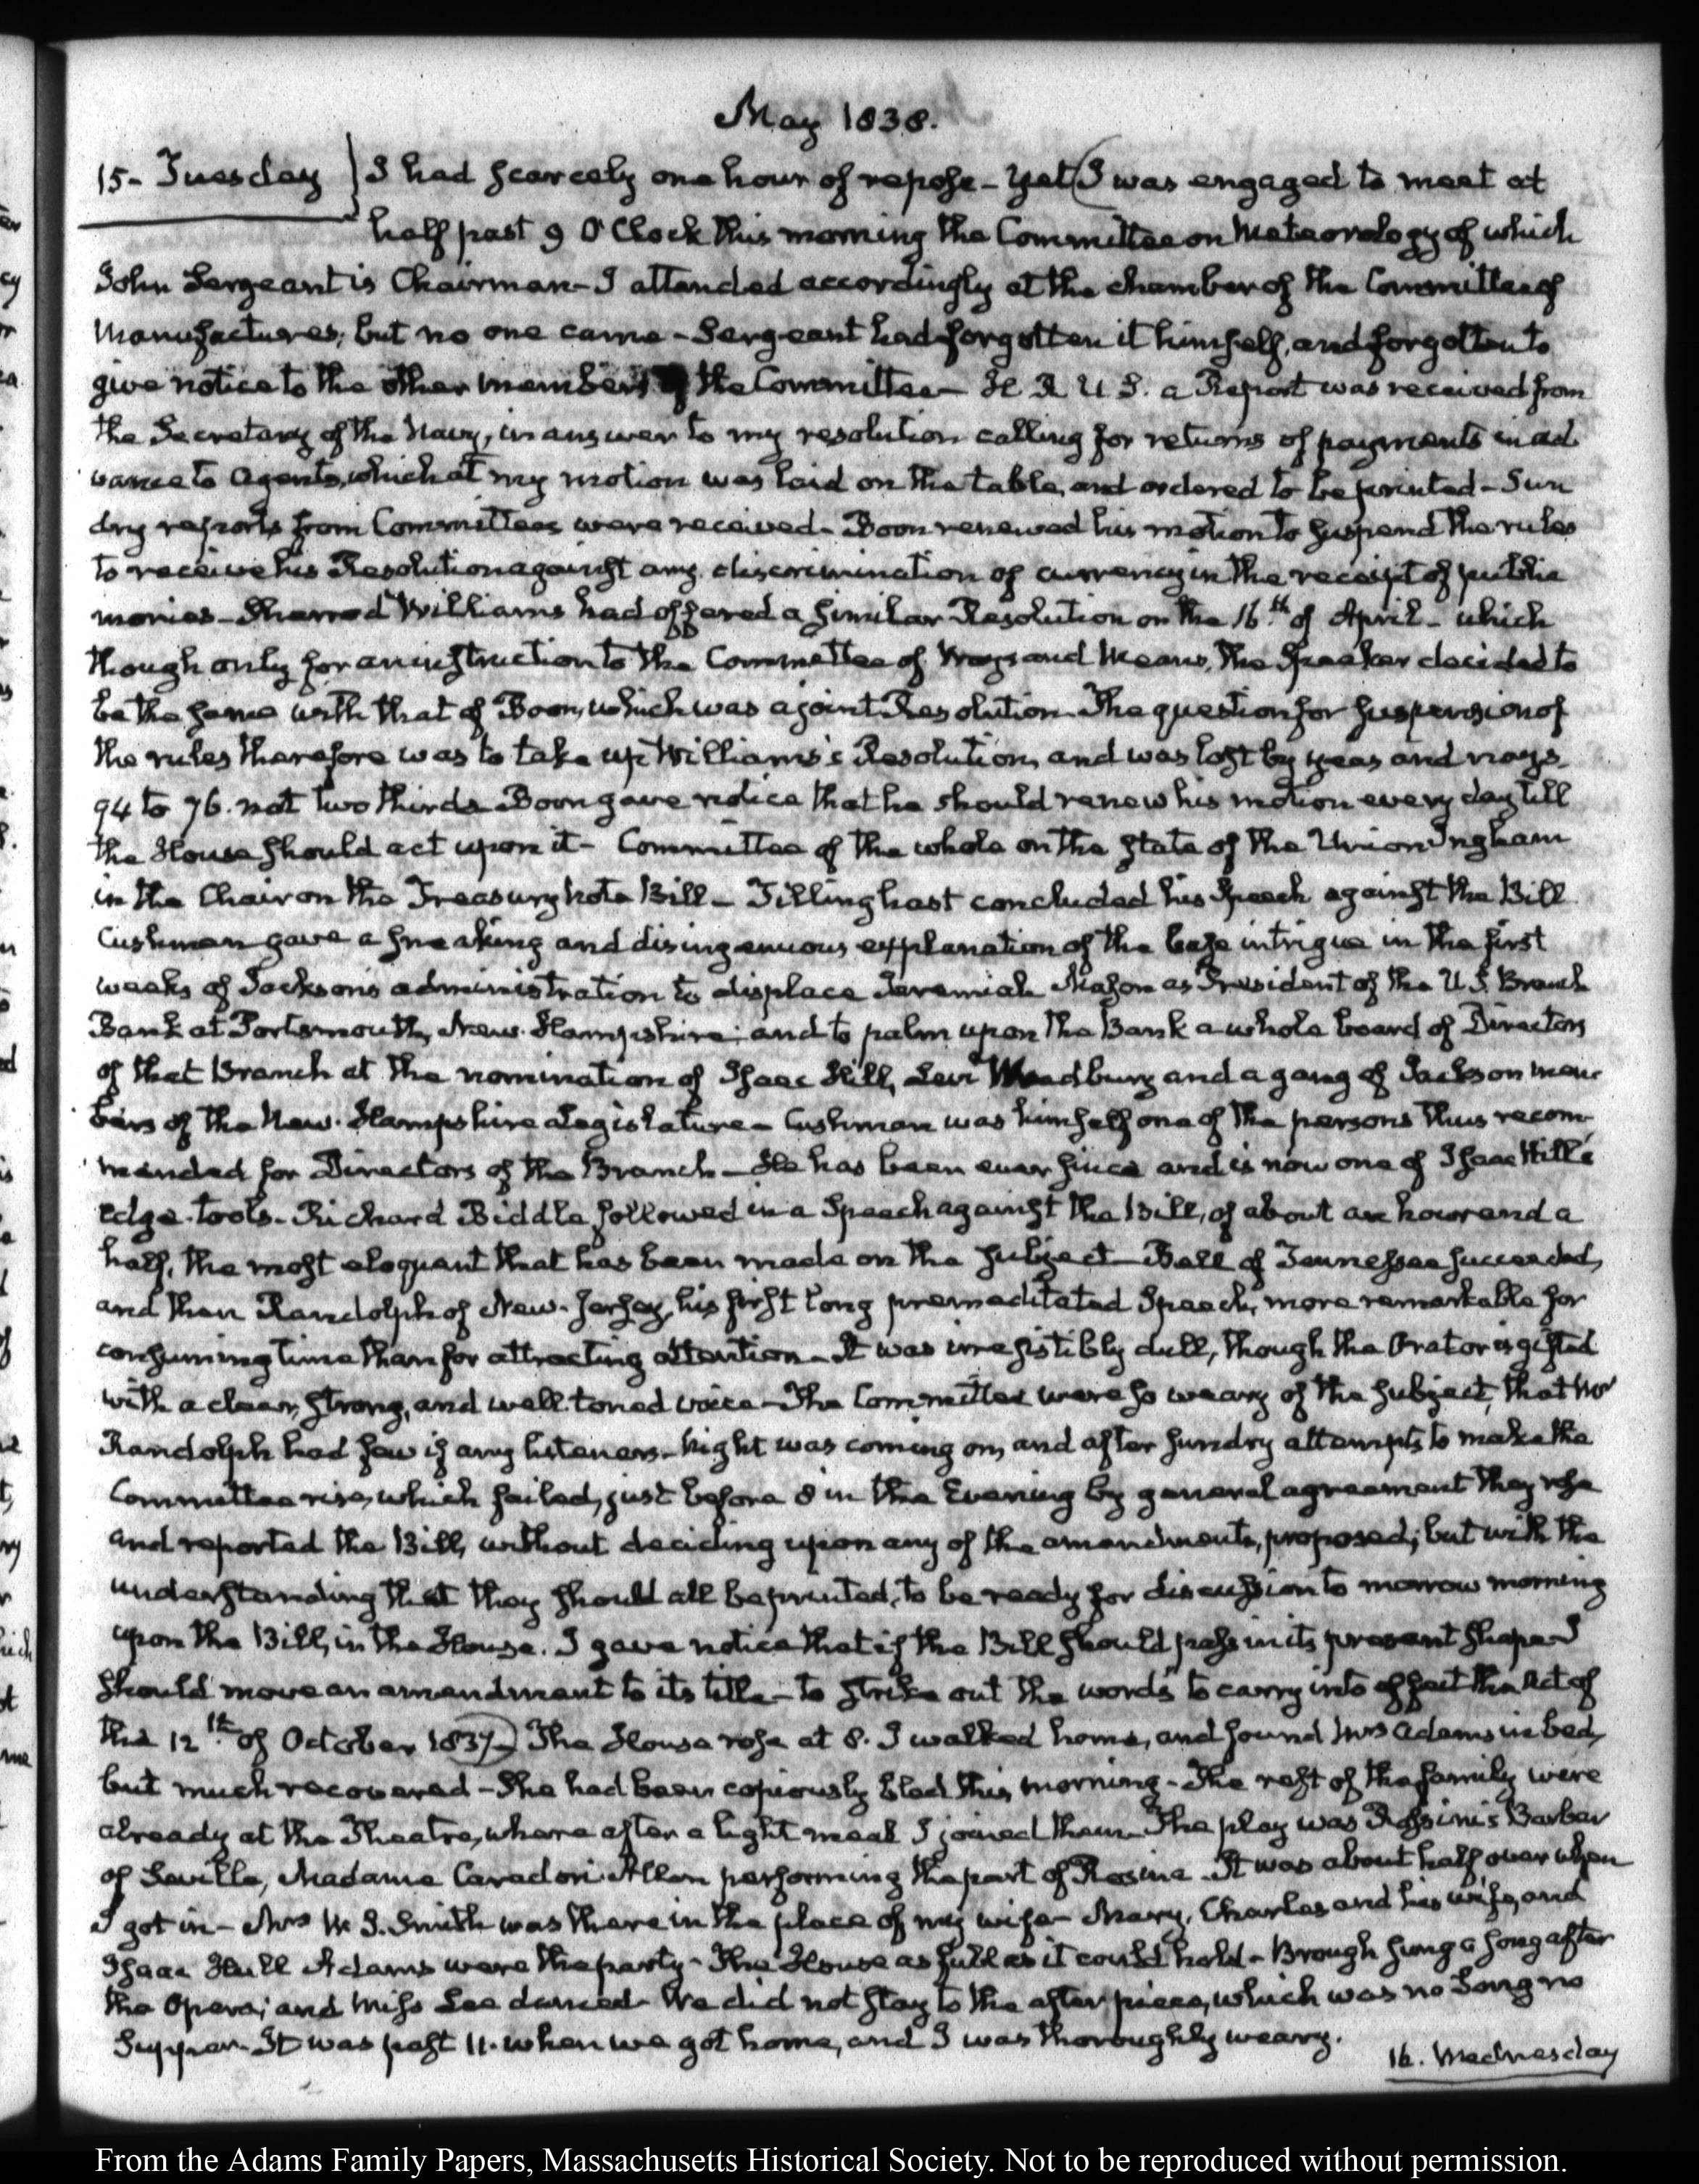 May 1838.
15- Tuesday } I had scarcely one hour of repose - yet (I was engaged to meet at
half past 9 O'Clock this morning the Committee on Meteorology of which
John Sergeant is Chairman - I attended accordingly at the chamber of the Committee of
Manufactures; but no one came - Sergeant had forgotten it himself, and forgotten to
give notice to the other members of the Committee - H. R. U. S. a Report was received from
the Secretary of the Navy, in answer to my resolution calling for returns of payments in ad
vance to Agents, which at my motion was laid on the table, and ordered to be printed - Sun
dry reports from Committees were received - Boon renewed his motion to suspend the rules
to receive his Resolution against any discrimination of currency in the receipt of public
monies - Sherrod Williams had offered a similar Resolution on the 16.th of April - which
though only for an instruction to the Committee of Ways and Means, the Speaker decided to
be the same with that of Boon, which was a joint Resolution. The question for suspension of
the rules therefore was to take up Williams's Resolution, and was lost by yeas and nays,
94 to 76. not two thirds - Boon gave notice that he should renew his motion every day till
the House should act upon it - Committee of the whole on the state of the Union Ingham
in the Chair on the Treasury note Bill - Tillinghast concluded his Speech against the Bill
Cushman gave a sneaking and disingenuous explanation of the base intrigue in the first
weeks of Jackson's administration to displace Jeremiah Mason as President of the U. S. Branch
Bank at Portsmouth, New-Hampshire; and to palm upon the Bank a whole board of Directors
of that Branch at the nomination of Isaac Hill, Levi Woodbury and a gang of Jackson mem
bers of the New-Hampshire Legislature - Cushman was himself one of the persons thus recom-
mended for Directors of the Branch - He has been ever since and is now one of Isaac Hill's
edge-tools - Richard Biddle followed in a Speech against the Bill, of about an hour and a
half, the most eloquent that has been made on the subject - Bell of Tennessee succeeded,
and then Randolph of New-Jersey, his first long premeditated Speech, more remarkable for
consuming time than for attracting attention - It was irresistibly dull, though the Orator is gifted
with a clear, strong, and well toned voice - The Committee were so weary of the subject, that
Randolph had few if any listeners - Night was coming on, and after sundry attempts to make the
Committee rise, which failed, just before 8 in the Evening by general agreement they rose
and reported the Bill, without deciding upon any of the amendments, proposed; but with the
understanding that they should all be printed, to be ready for discussion to morrow morning
upon the Bill, in the House. I gave notice that if the Bill should pass in its present shape I
should move an amendment to its title - to strike out the words to carry into effect the Act of
the 12.th of October 1837-) The House rose at 8. I walked home, and found Mrs Adams in bed,
but much recovered - She had been copiously bled this morning - The rest of the family were
already at the Theatre, where after a light meal I joined them - The play was Rossini's Barber
of Seville, Madame Caradori Allan performing the part of Rosina - It was about half over when
I got in - Mrs W. S. Smith was there in the place of my wife - Mary, Charles and his wife, and
Isaac Hull Adams were the party - The House as full as it could hold - Brough sung a song after
the Opera; and Miss Lee danced - We did not stay to the after piece, which was no Song no
Supper - It was past 11. when we got home, and I was thoroughly weary.
16. Wednesday
From the Adams Family Papers, Massachusetts Historical Society. Not to be reproduced without permission.